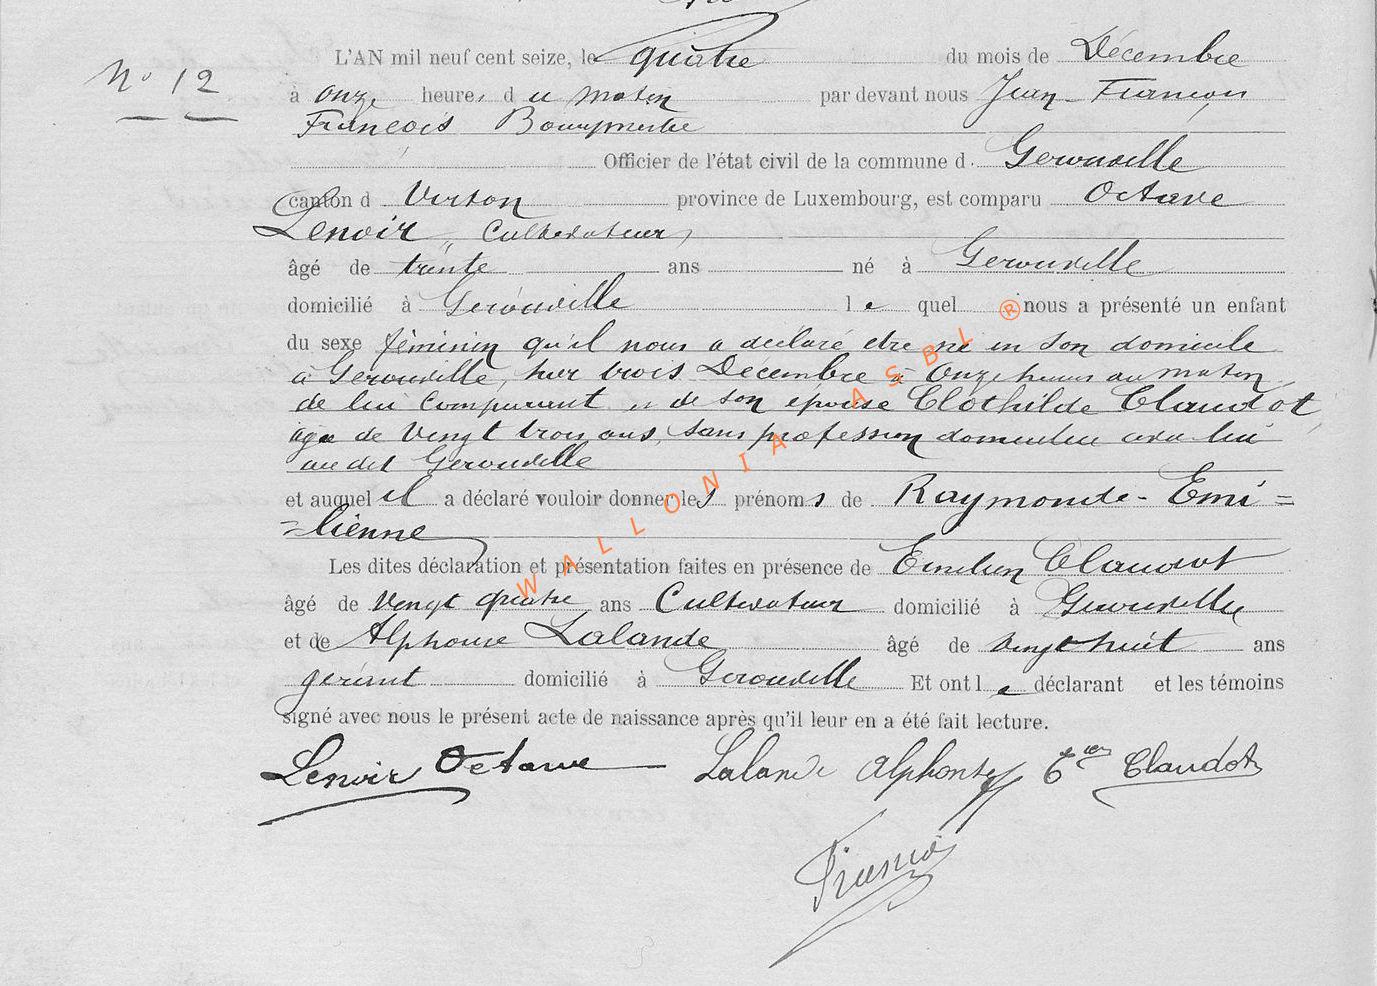 L'AN mil neuf cent seize, le quatre du mois de Décembre
N° 12
à onze heures du matin par devant nous Jean-François
François Bourgmestre
Officier de l'état civil de la commune d. Gerouville
canton d Virton province de Luxembourg, est comparu Octave
Lenoir Cultivateur
âgé de trente ans né à Gerouville
domicilié à Gerouville le quel nous a présenté un enfant
du sexe féminin qu'il nous a déclaré être né en son domicile
à Gerouville, hier trois Décembre à onze heures du matin
de lui comparant et de son épouse Clothilde Claudot,
agée de vingt trois ans, sans profession domiciliée avec lui
au dit Gerouville
et auquel il a déclaré vouloir donner les prénoms de Raymonde-Emi=
=lienne
Les dites déclaration et présentation faites en présence de Emilien Claudot
âgé de vingt quatre ans Cultivateur domicilié à Gerouville
et de Alphonse Lalande âgé de vingt huit ans
gérant domicilié à Gerouville Et ont le déclarant et les témoins
signé avec nous le présent acte de naissance après qu'il leur en a été fait lecture.
Lenoir Octave Lalande Alphonse Claudot
François
WALLONIA ASBL ®